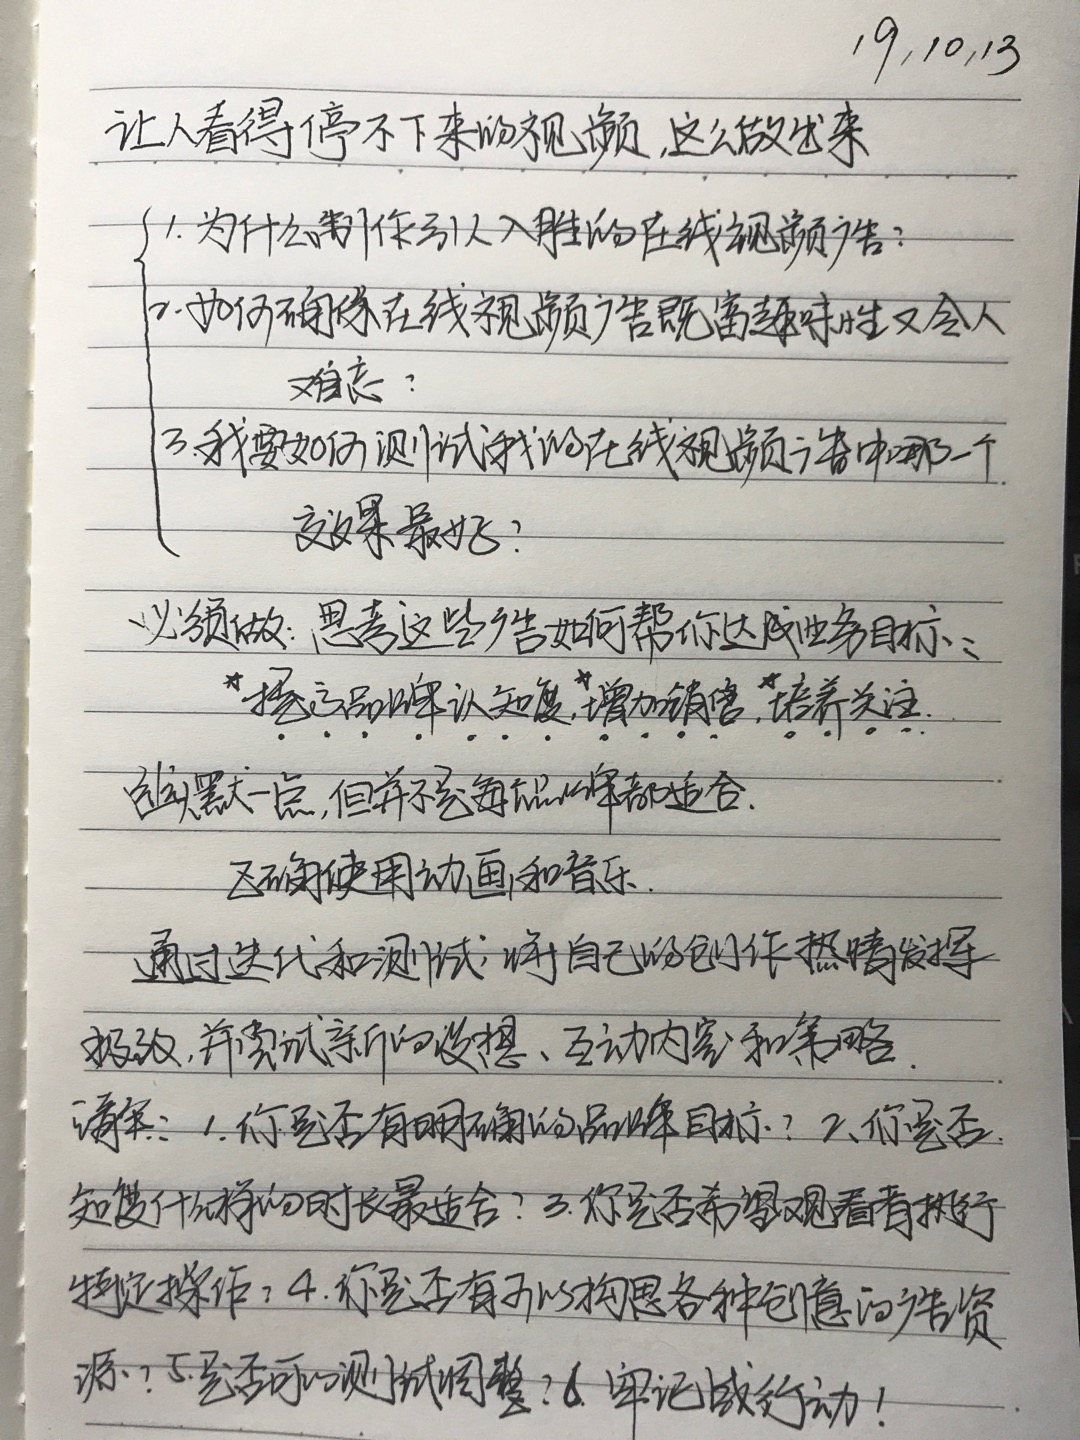 19.10.13
让人看得停不下来的视频,这么做出来
1.为什么制作引人入胜的在线视频广告?
2.如何确保在线视频广告既富趣味性又令人
难忘?
3.我要如何测试我的在线视频广告中哪一个
效果最好?
必须做:思考这些广告如何帮你达成业务目标:
*提高品牌认知度,*增加销售,*培养关注.
幽默一点,但并不是每个品牌都适合.
正确使用动画和音乐.
通过迭代和测试,将自己的创作热情发挥
极致,并尝试新的设想、互动内容和策略.
清单:1.你是否有明确的品牌目标?2、你是否
知道什么样的时长最适合?3.你是否希望观看者执行
特定操作?4.你是否有可以构思各种创意的广告资
源?5.是否可以测试调整?6.牢记成行动!